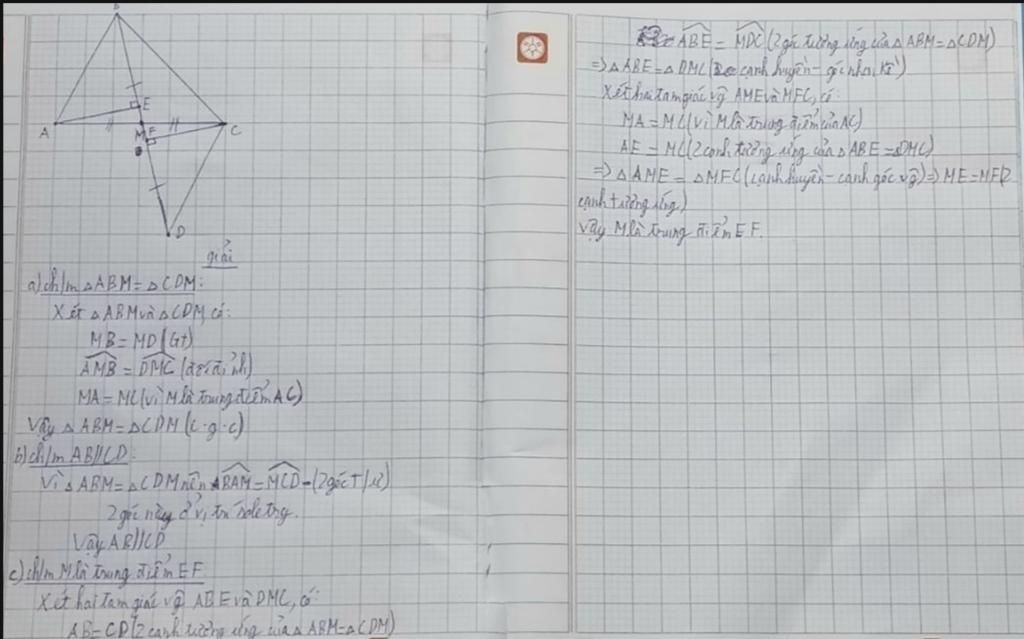 B
E
A
M
F
C
D
giải
a) ch/m △ABM = △CDM:
Xét △ABM và △CDM, có:
MB = MD (Gt)
AMB = DMC (đối đỉnh)
MA = MC (vì M là trung điểm AC)
Vậy △ABM = △CDM (c.g.c)
b) ch/m AB//CD:
Vì △ABM = △CDM nên BAM = MCD (2 góc t/ư)
2 góc này ở vị trí sole trg.
Vậy AB//CD
c) ch/m M là trung điểm EF
Xét hai tam giác vg ABE và DMC, có:
AB = CD (2 cạnh tương ứng của △ABM = △CDM)
ABE = MDC (2 góc tương ứng của △ABM = △CDM)
=> △ABE = △DMC (cạnh huyền - góc nhọn kề)
Xét hai tam giác vg AME và MFC, có:
MA = MC (vì M là trung điểm của AC)
AE = MC (2 cạnh tương ứng của △ABE = △DMC)
=> △AME = △MFC (cạnh huyền - cạnh góc vg) => ME = MF (2
cạnh tương ứng)
Vậy M là trung điểm EF.